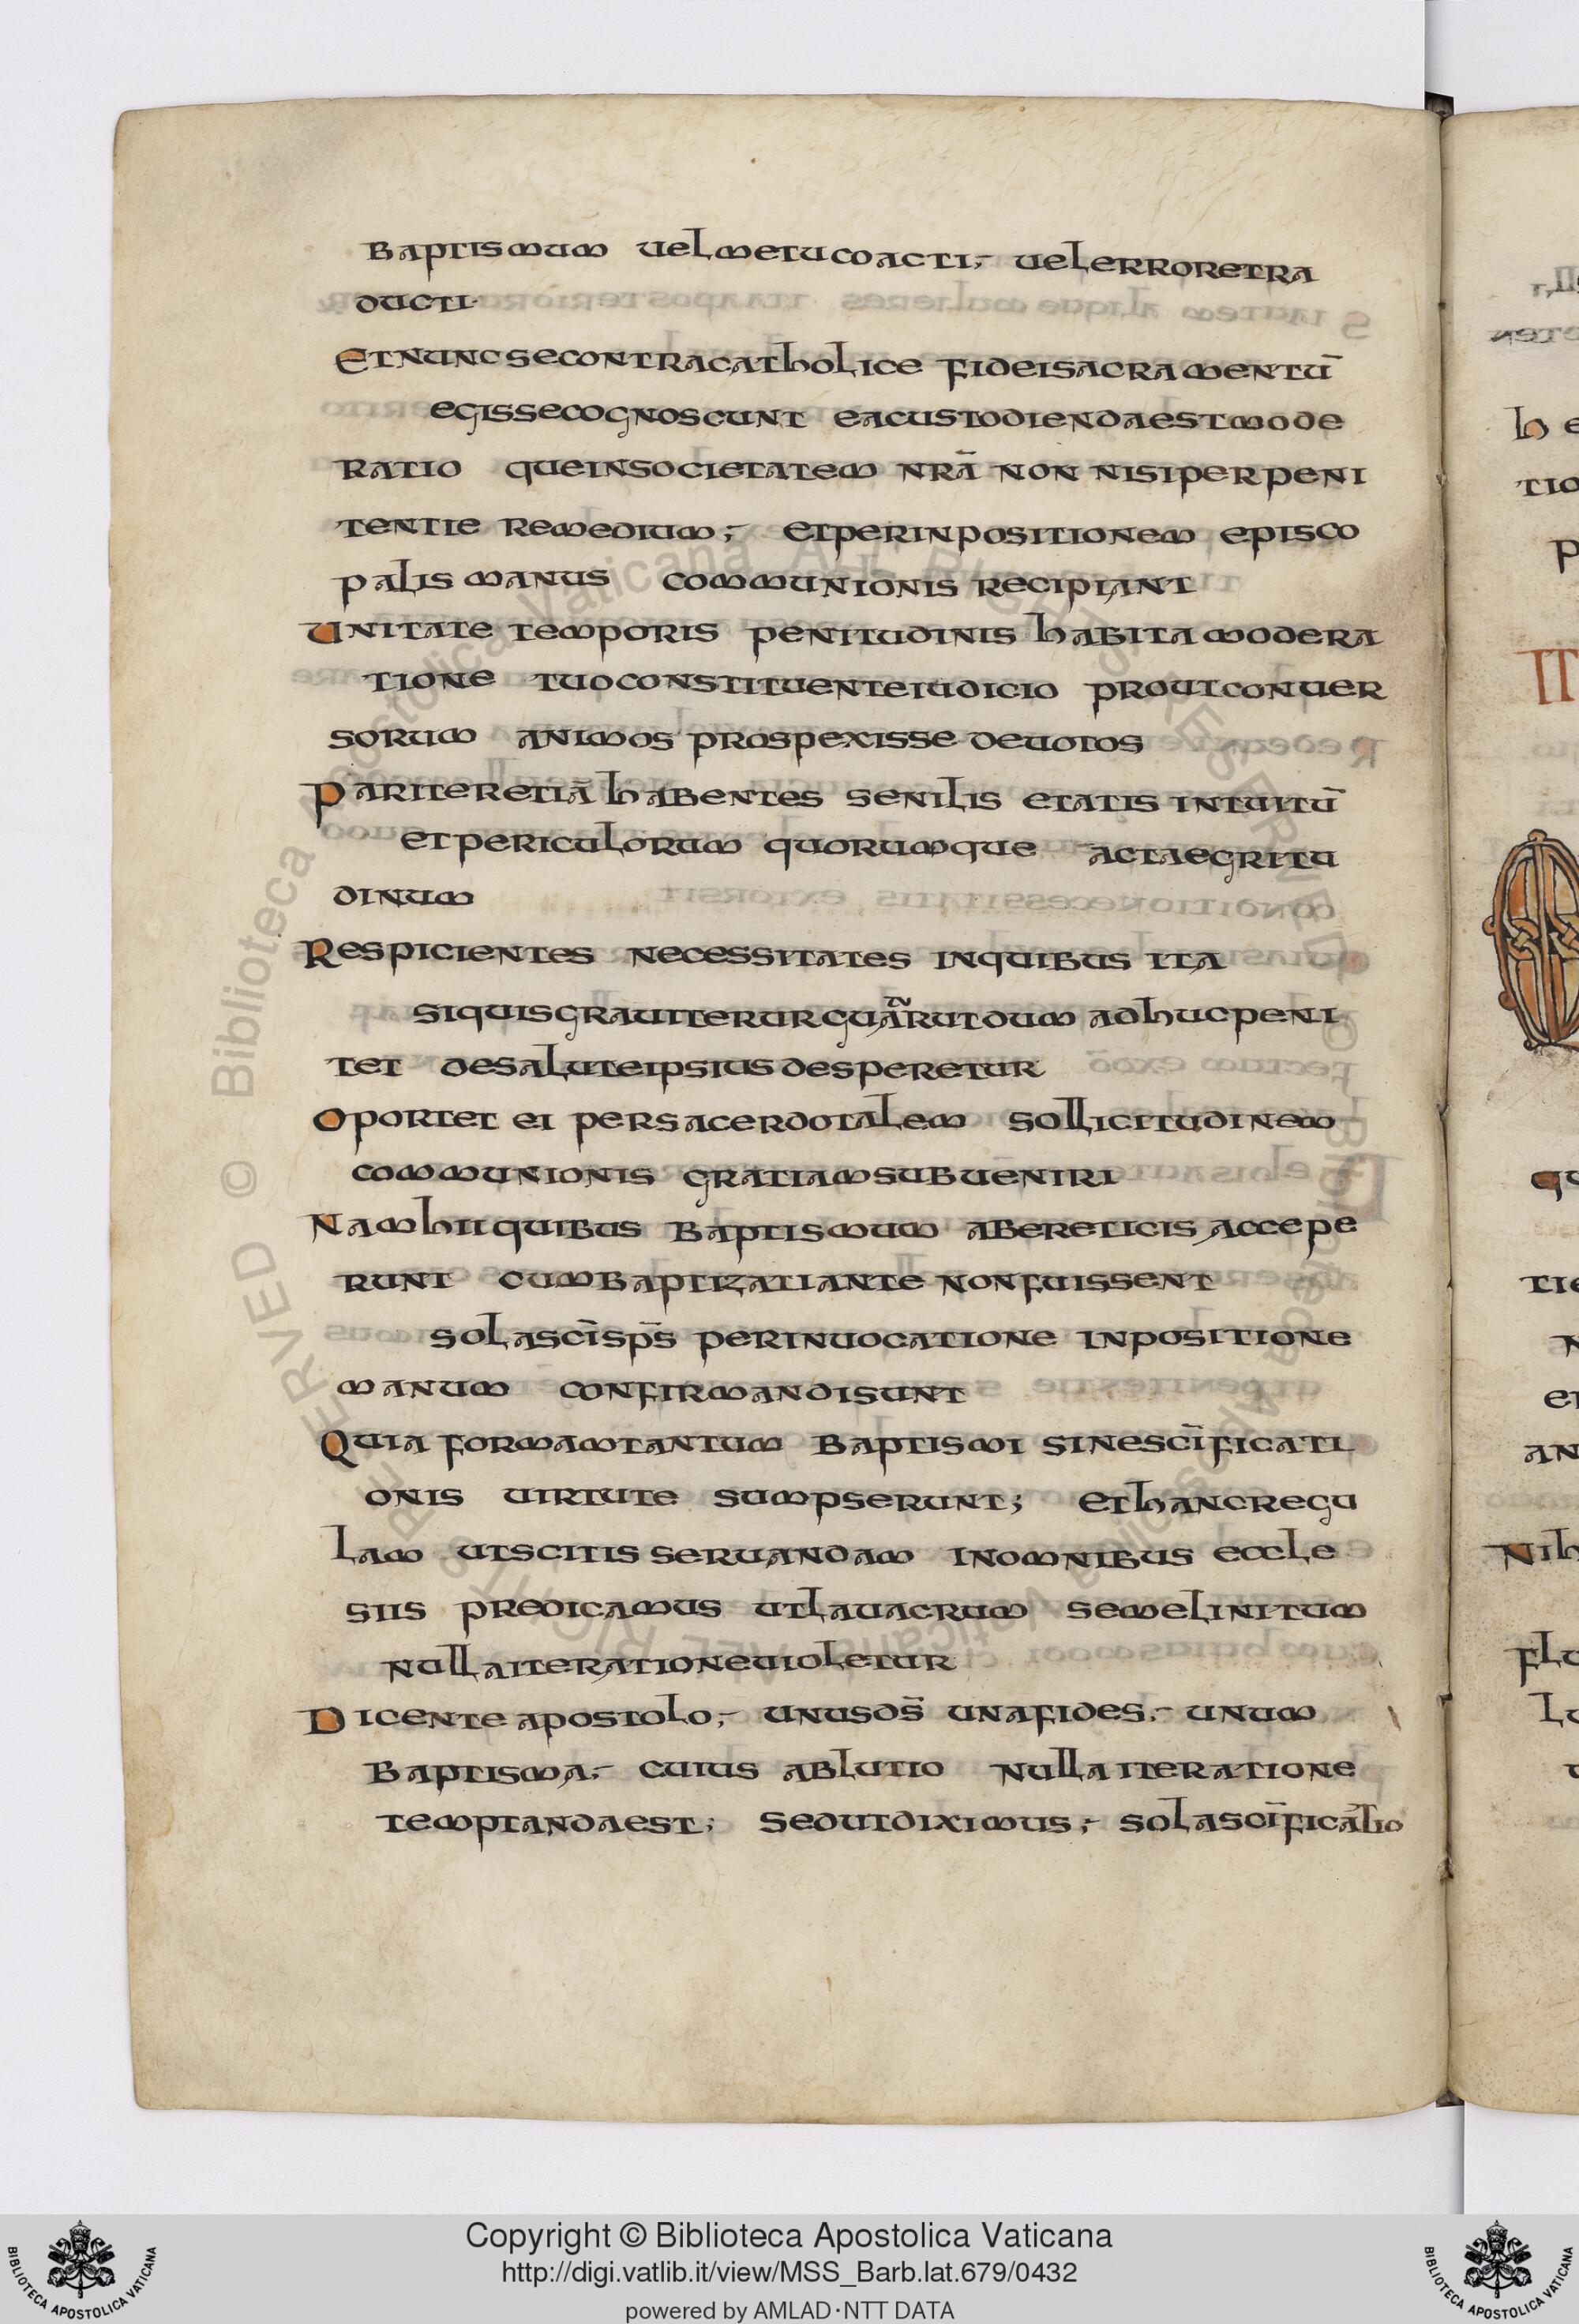 baptismum uel metu coacti; uel errore tra
ducti
Et nunc se contra catholice fidei sacramentū
egisse cognoscunt ea custodienda est mode
ratio que in societatem nrā non nisi per peni
tentie remedium; et per inpositionem episco
palis manus communionis recipiant
Unitate temporis penitudinis habita modera
tione tuo constituente iudicio prout conuer
sorum animos prospexisse deuotos
Pariter etiā habentes senilis etatis intuitū
et periculorum quorumque acta egritu
dinum
Respicientes necessitates in quibus ita
si quis grauiter urguār ut dum adhuc peni
tet de salute ipsius desperetur
Oportet ei per sacerdotalem sollicitudinem
communionis gratiam subueniri
Nam hii qui bus baptismum ab ereticis accepe
runt cum baptizati ante non fuissent
sola scī sps̄ per inuocatione inpositione
manum confirmandi sunt
Quia formam tantum baptismi sine scīficati
onis uirtute sumpserunt; et hanc regu
lam ut scitis seruandam in omnibus eccle
siis predicamus ut lauacrum semel initum
nulla iteratione uioletur
Dicente apostolo; unus ds̄ una fides; unum
baptisma; cuius ablutio nulla iteratione
temptanda est; sed ut diximus; sola scīficatio
Copyright © Biblioteca Apostolica Vaticana
http://digi.vatlib.it/view/MSS_Barb.lat.679/0432
powered by AMLAD·NTT DATA
BIBLIOTECA APOSTOLICA VATICANA
BIBLIOTECA APOSTOLICA VATICANA